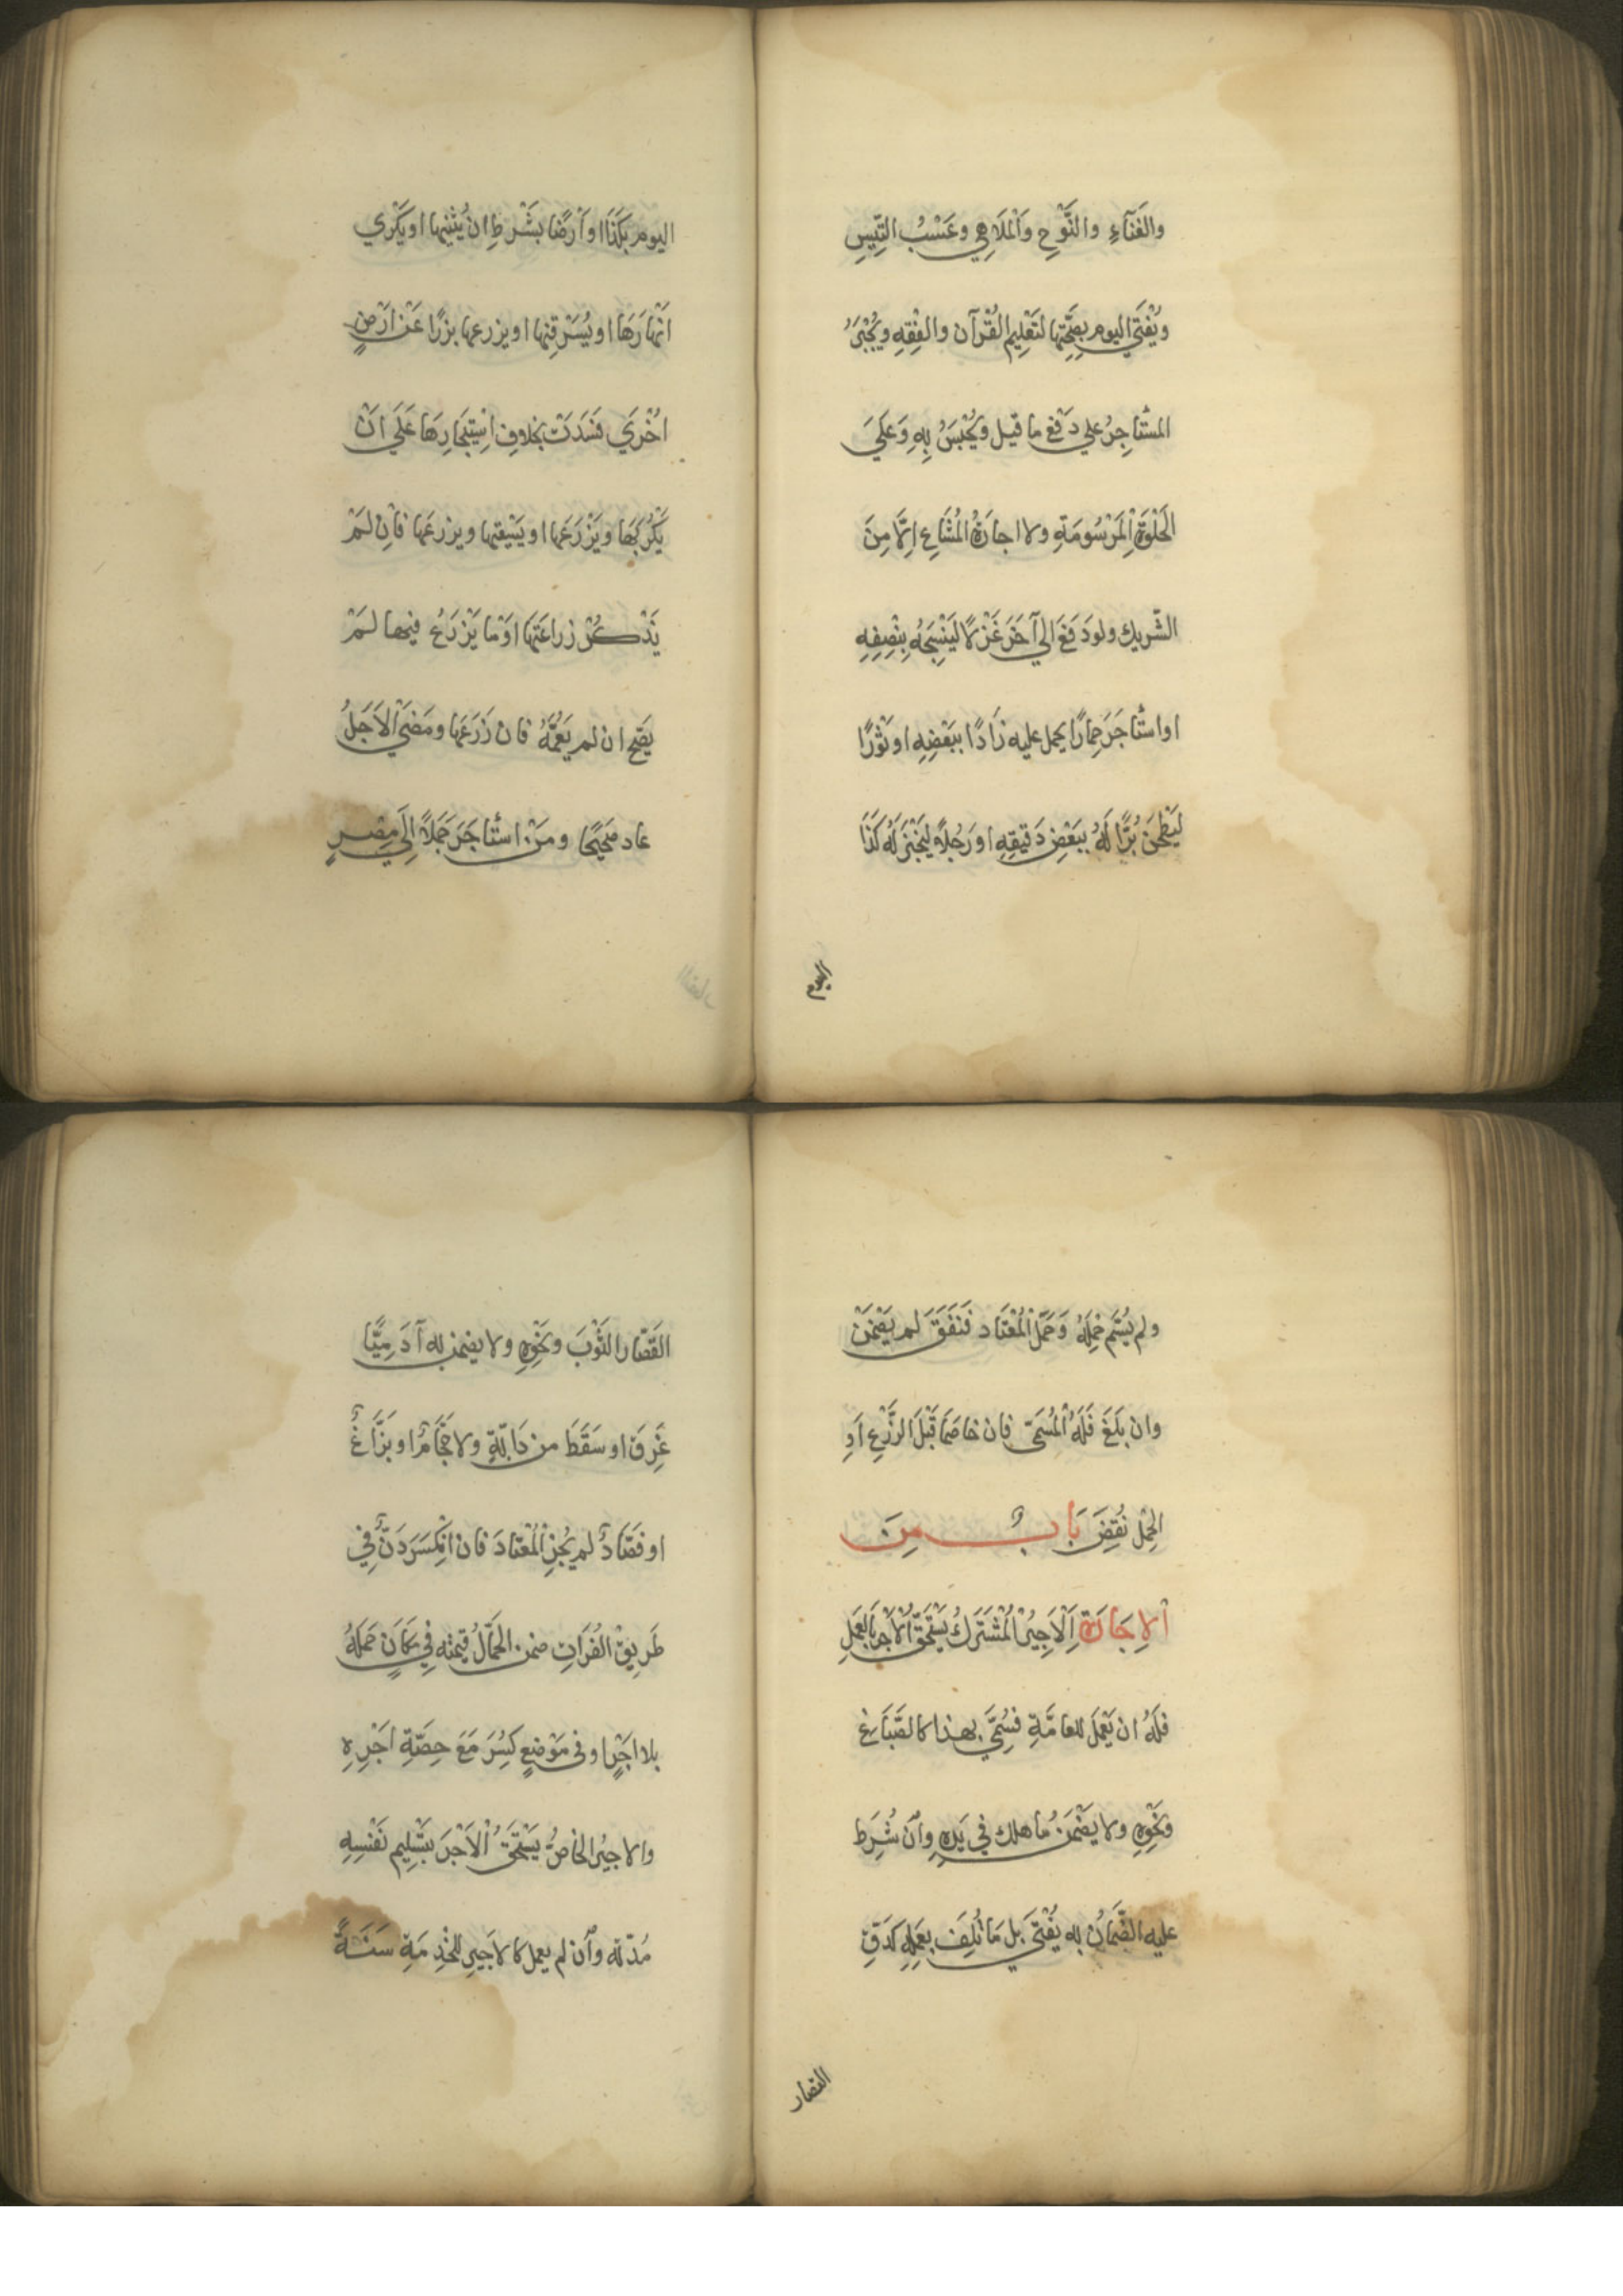 والغَنَآءِ والنَّوْحِ وَاْلمَلَاهِي وعَسْبُ التَّيسِ
ويُفْتَي اليوم بصِحَّتِها لتَعْلِيم القُرْآن والفِقِهِ ويُجْبَرُ
المسْتأجِرُ علي دَفْع ما قيل ويُحْبَسُ بِهِ وَعَلَيَ
الحَلْوَةِ اْلمَرْسُومَةِ ولا اجارَةُ المُشَاعِ اِلَّا مِنَ
الشَّريك ولو دَفَعَ الي آخَرَ غَزْلًا ليَنْسِجَهُ بِنْصِفِهِ
او استأجَرَ حِمارًا يحمل عليه زَادًا ببَعْضِهِ او ثَوْرًا
ليَطْحَنَ بُرًّا لَهُ ببَعْضِ دَقِيقِهِ او رَجُلاً ليَخْبِزَ لَهُ كَذَا
اليوم
اليوم بكَذَا او اَرْضًا بشَرْطِ ان يُثْنِيها او يَكْرِي
اَنْهارَهَا او يُسَرْقِنها او يزرعها بزرًا عَنْ اَرْضٍ
اُخْرَي فسَدَتْ بخلاف اسْتِيجَارِهَا عَلَي اَنْ
يَكْرُبَهَا ويَزْرَعَها او يَسْقيها ويزرعَها فاِن لَمْ
يَذْكُرْ زراعَتَها اوْ ما يَزْرَعُ فيها لَمْ
يَصِح ان لم يَعُمَّهُ فان زَرَعَها ومَضَي اْلاَجَلُ
عاد صَحيحًا ومَنْ استأجَرَ جَمَلاً اِلَي مِصْرٍ
ولم يُسَّم حَمْلَهُ وَحَمَّل اْلمُعْتَاد فنَفَقَ لم يَضْمَنْ
وان بلَغَ فَلَهُ اْلمُسَمّي فان خاصَمَا قَبْلَ الزَّرْعِ اَوِ
الحِمْلِ نُقِضَ بَابٌ مِنَ
اْلاِجَارَةِ اَلْاَجِيرُ اْلمُشْتَرَكُ يَسْتَحَقُّ اْلاَجْرَ بِالعَمَلِ
فلَهُ ان يَعْمَلَ للعامَّةِ فسُمِّي بهذا كالصَّبَّاغ
ونَحْوِهِ ولا يضْمَنُ ما هلك في يَدِهِ وان شُرِطَ
عليه الضَّمانُ به يُفْتَي بل مَا تُلِفَ بعَمَلِهِ كدَقِّ
القصار
القَصّار الثَّوْبَ ونَحْوِهِ ولا يضمن به آدَمِيًّا
غَرِقَ او سَقَطَ من دَابَّةٍ ولا حَجّامٌ او بَزَّاغٌ
او فَصّادٌ لم يَجُزِ اْلمُعْتادَ فان انْكَسَرَ دَنٌّ فِي
طَرِيقِ الفُرَاتِ ضمن الحَمَّالُ قيمته فِي مَكَانٍ حَمَلَهُ
بلا اَجْرٍ او في مَوْضِعٍ كُسِرَ مَعَ حِصَّةِ اَجْرِهِ
والاجيرُ الخاصُّ يَسْتَحَقُّ اْلاَجْرَ بتَسْلِيم نَفْسِهِ
مُدّته وان لم يعمل كالاَجيرِ للخِدمَةِ سَنَةً